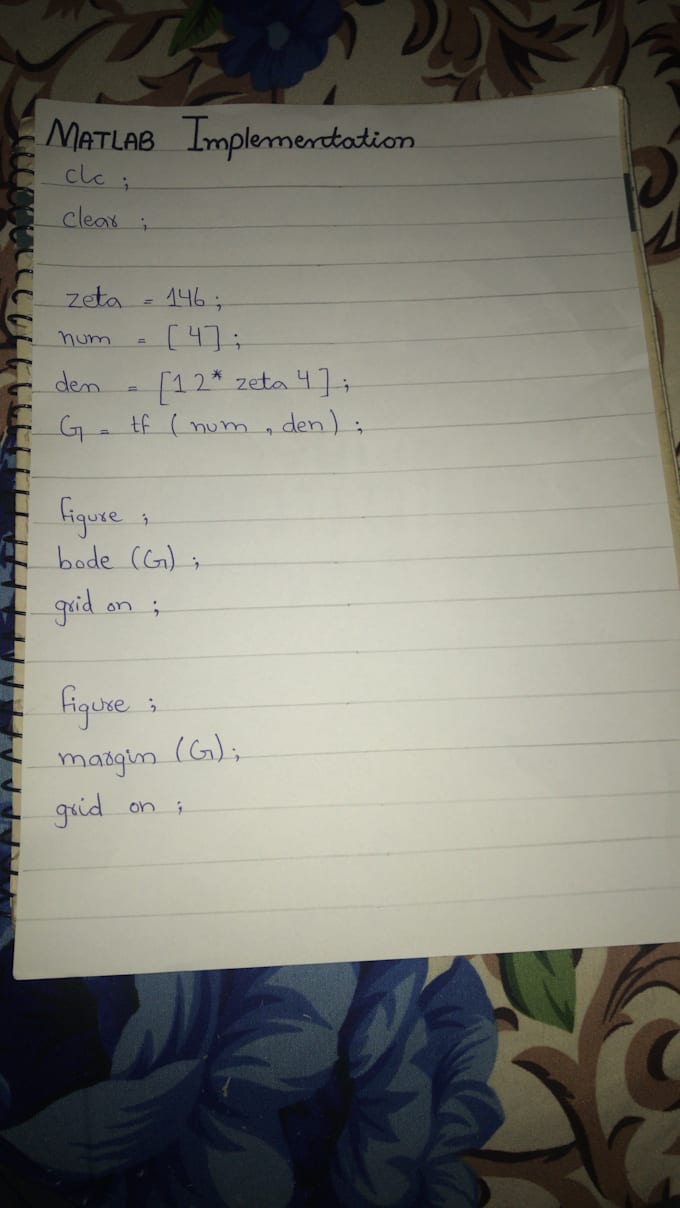 MATLAB Implementation
clc ;
clear ;
zeta = 146 ;
num = [ 4] ;
den = [1 2* zeta 4 ] ;
G = tf ( num , den ) ;
figure ;
bode (G) ;
grid on ;
figure ;
margin (G) ;
grid on ;